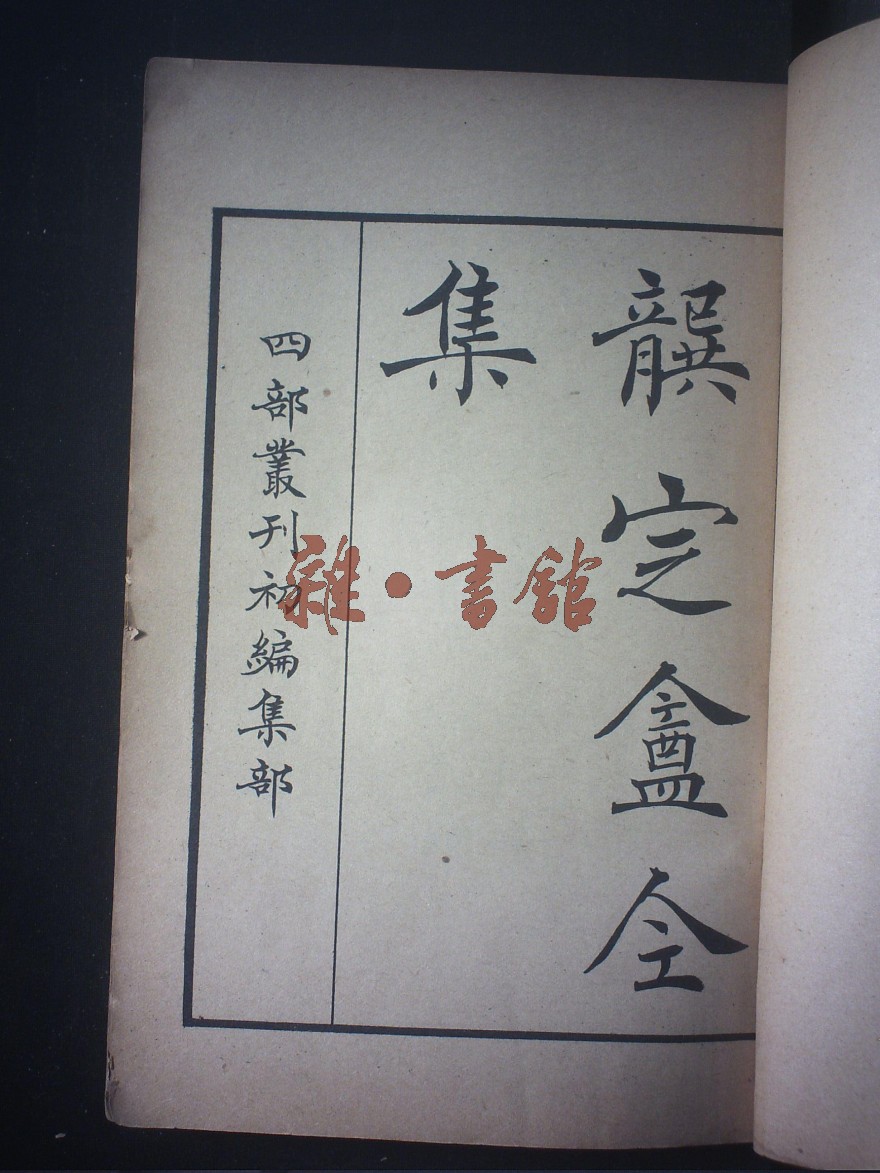 龔定盦全
集
四部叢刊初編集部
雜·書館